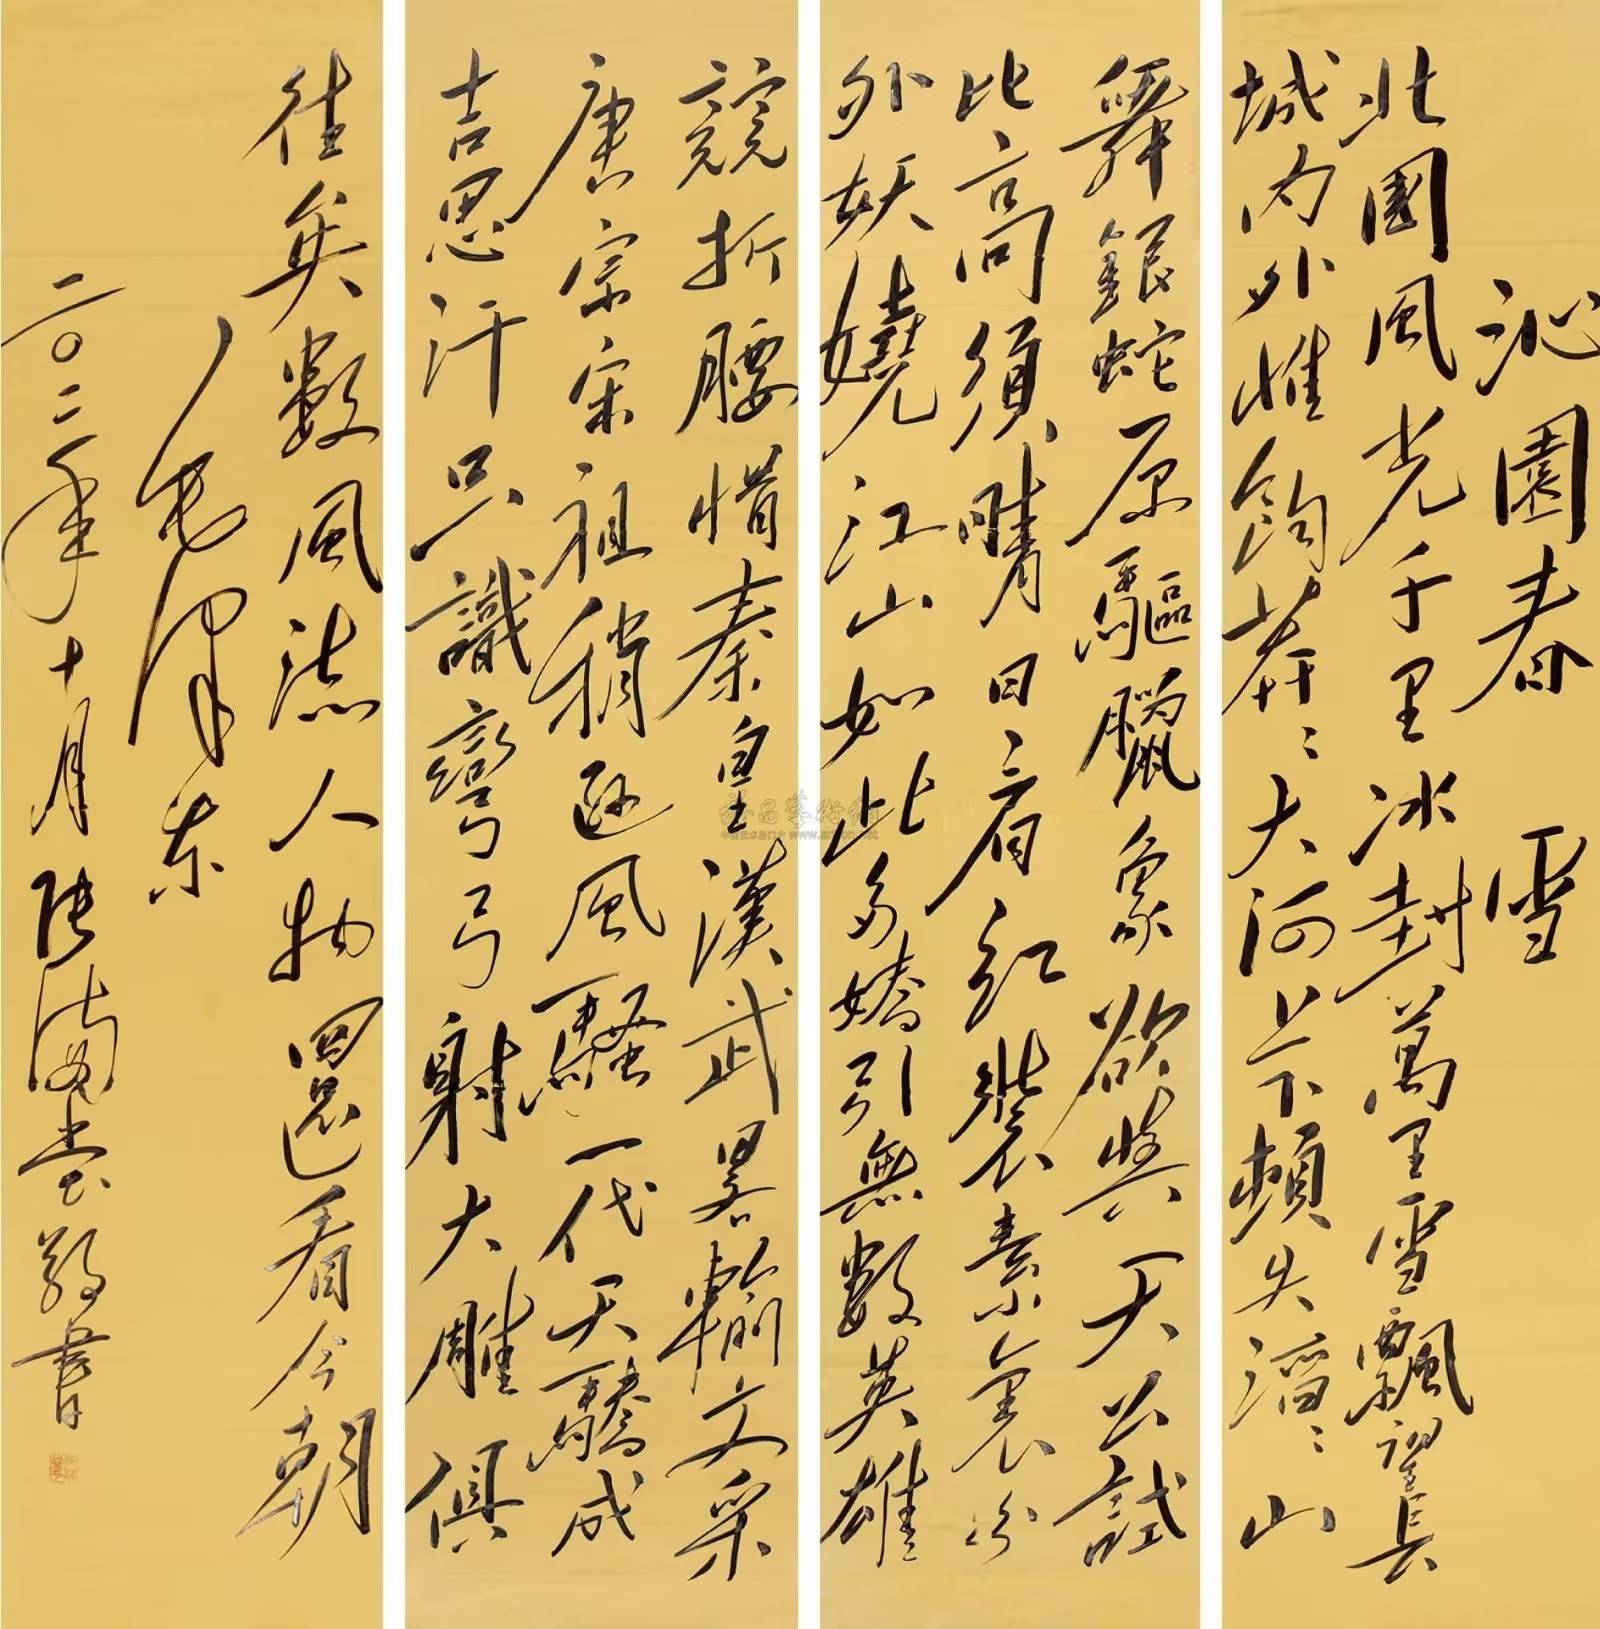 沁園春 雪
北國風光千里冰封萬里雪飄望長
城内外惟餘莽〻大河上下頓失滔〻山
舞銀蛇原驅臘象欲與天公試
比高須晴日看紅裝素裹分
外妖嬈江山如此多嬌引無數英雄
競折腰惜秦皇漢武畧輸文采
唐宗宋祖稍遜風騷一代天驕成
吉思汗只識彎弓射大雕俱
往矣數風流人物還看今朝
毛澤東
二〇二年十月張滿堂敬書